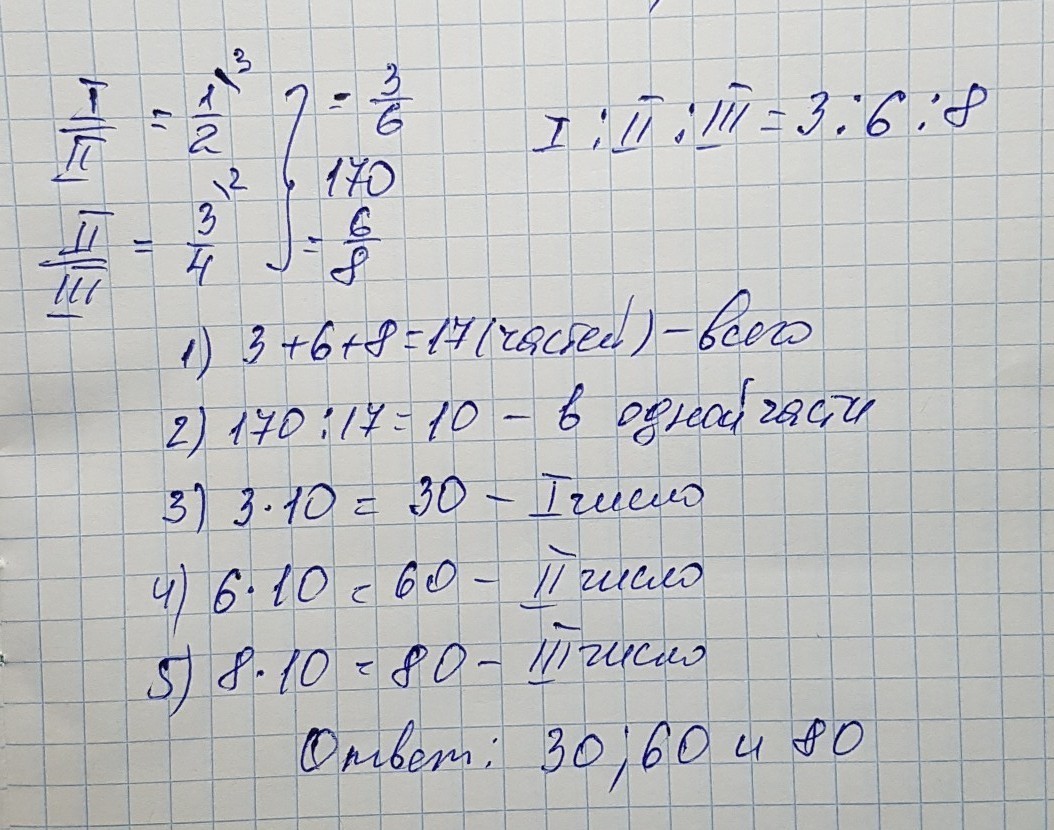 I/II = 1/2 \3 } = 3/6
I : II : III = 3 : 6 : 8
170
II/III = 3/4 \2 } = 6/8
1) 3+6+8=17(частей) – всего
2) 170 : 17 = 10 – в одной части
3) 3·10 = 30 – I число
4) 6·10 = 60 – II число
5) 8·10 = 80 – III число
Ответ: 30; 60 и 80